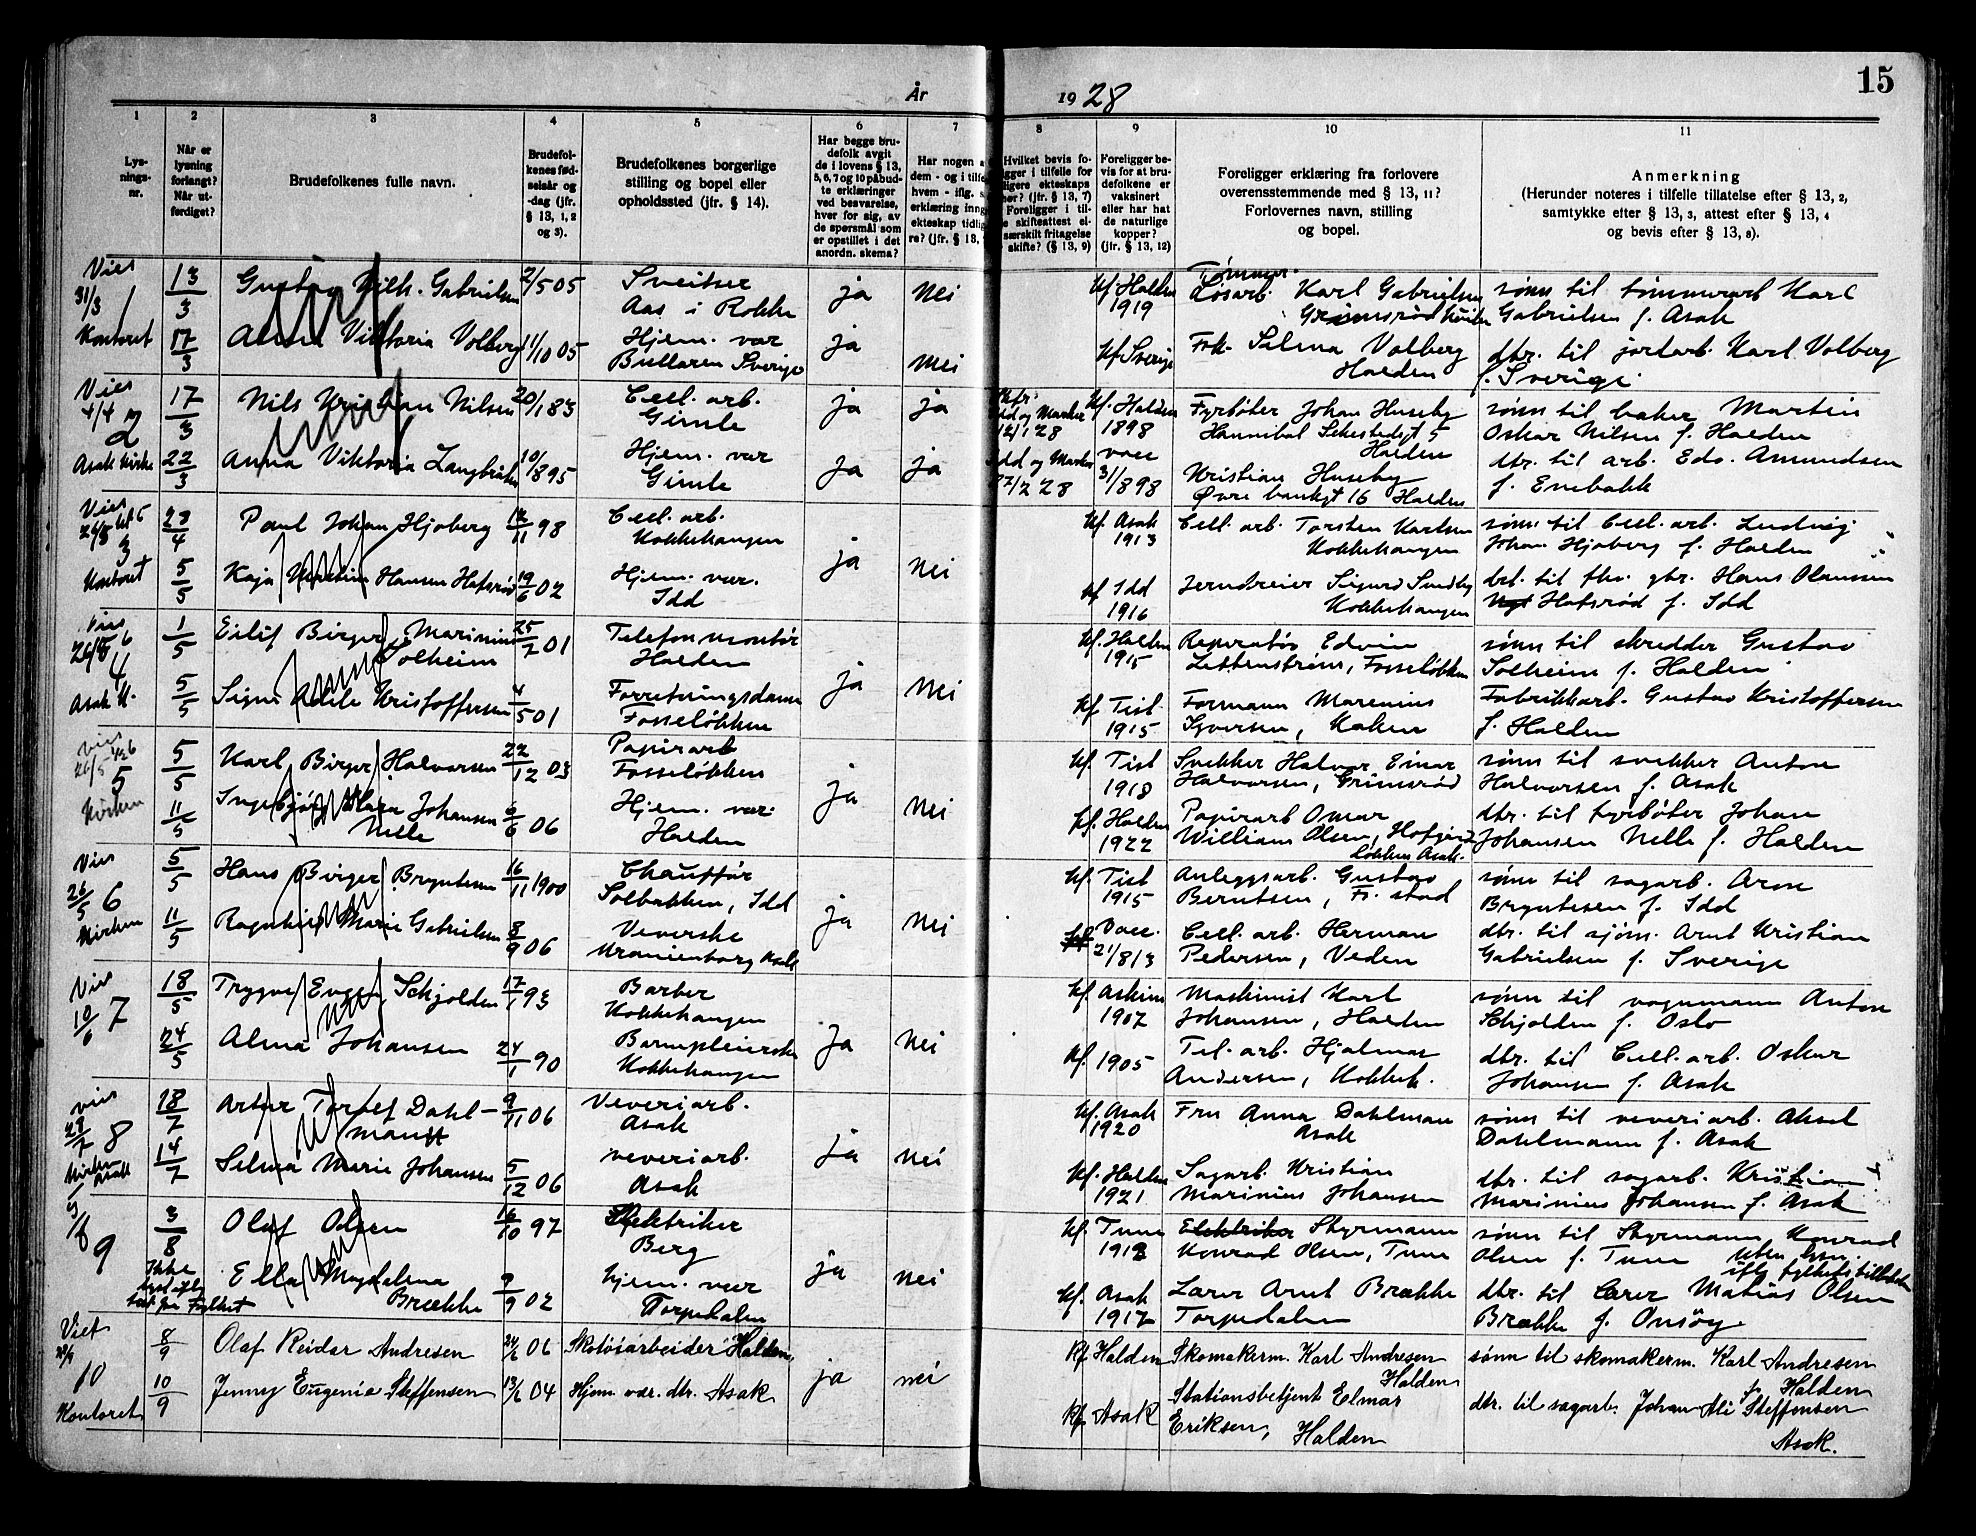 År 1928
15
1 2 3 4 5 6 7 8 9 10 11
Lys-
nings-
nr.
Når er
lysning
forlangt?
Når ut-
ferdiget?
Brudefolkenes fulle navn.
Brudefol-
kenes fød-
selsår og
-dag (jfr.
§ 13, 1, 2
og 3).
Brudefolkenes borgerlige
stilling og bopel eller
opholdssted (jfr. § 14).
Har begge bru-
defolk avgit
de i lovens § 13,
5, 6, 7 og 10 påbud-
te erklæringer
ved besvarelse,
hver for sig, av
de spørsmål som
er opstillet i det
anordn. skema?
Har nogen a
dem - og i tilfe
hvem - iflg. s.
erklæring inng
ekteskap tidlig
re? (jfr. § 13,
Hvilket bevis fo-
gger i tilfelle for
ligere ekteskaps
her? (§ 13, 7)
Foreligger i til-
e skifteattest el-
særskilt fritagelse
skifte? (§ 13, 9)
Foreligger be-
vis for at bru-
defolkene er
vaksinert
eller har hat
de naturlige
kopper?
(jfr. § 13, 12)
Foreligger erklæring fra forlovere
overensstemmende med § 13, 11?
Forlovernes navn, stilling
og bopel.
Anmerkning
(Herunder noteres i tilfelle tillatelse efter § 13, 2,
samtykke efter § 13, 3, attest efter § 13, 4
og bevis efter § 13, 8).
Vies 31/3 1 Kontoret
13/3 Gustav Vilh. Gabrielsen 2/5 05 Sveitser
Aas i Rokke ja nei kf. Halden
1919 Tømmer.
Løsarb. Karl Gabrielsen
Grimsrød sønn til tømmerarb Karl
Gabrielsen f. Asak
17/3 Viktoria Volberg 11/10 05 Hjem. vær
Bullaren Sverige ja nei kf. Sverige Frk. Selma Volberg
Halden dtr. til jordarb. Karl Volberg
f. Sverige.
Vies 4/4 2 Asak kirke
17/3 Nils Kristian Nilsen 20/1 83 Cell. arb.
Gimle ja ja Idd og Marker
12/1 28 kf. Halden
1898 Fyrbøter Johan Huseby
Hannibal Sehestedsgt 5
Halden sønn til baker Martin
Oskar Nilsen f. Halden
22/3 Anna Viktoria 10/8 95 Hjem. vær
Gimle ja ja Idd og Marker
28 vacc
31/8 98 Kristian Huseby
Øvre bankgt 16 Halden dtr. til arb. Edv. Amundsen
f. Enebakk
Vies 26/5 3 Kontoret
23/4 Paul Johan Hjøberg 12/11 98 Cell. arb.
Kokkehaugen ja nei kf. Asak
1913 Cell. arb. Torsten Karlsen
Kokkehaugen sønn til Cell. arb. Ludvig
Johan Hjøberg f. Halden
5/5 Kaja Hansen Hafsrød 19/6 02 Hjem. vær.
Idd kf. Idd
1916 Jerndreier Sigurd Sundby
Kokkehaugen dtr. til fhv. gbr. Hans Olaussen
Hafsrød f. Idd
Vies 26/5 4 Asak k.
1/5 Eilif Birger Marinius
Solheim 25/7 01 Telefonmontør
Halden ja nei kf. Halden
1915 Reperatør Edvin
Zettenstrøm, Fosseløkken sønn til skredder Gustav
Solheim f. Halden
5/5 Signe Adele Kristoffersen 4/5 01 Forretningsdame
Fosseløkken kf. Tist.
1915 Formann Marenius
Syversen, Kaken Fabrikkarb. Gustav Kristoffersen
f. Halden
Vies 26/5 5 Kirken
5/5 Karl Birger Halvorsen 22/12 03 Papirarb
Fosseløkken ja nei kf. Tist
1918 Svekker Halvor Einar
Halvorsen, Grimsrød sønn til svekker Anton
Halvorsen f. Asak
11/5 Ingebjørg Johansen
Nelle 5/6 06 Hjem. vær.
Halden kf. Halden
1922 Papirarb Omar
William Olsen,
løkken Asak. dtr. til fyrbøter Johan
Johansen Nelle f. Halden
Vies 26/5 6 Kirken
5/5 Hans Birger Bryntesen 16/11 1900 Chauffør
Solbakken, Idd ja nei kf. Tist
1915 Anleggsarb. Gustav
Berntsen, Fr. stad sønn til sagarb. Arne
Bryntesen f. Idd
11/5 Ragnhild Marie Gabrielsen 8/9 06 Veverske
Uranienborg Asak Vacc.
21/8 13 Cell. arb. Herman
Pedersen, Veden dtr. til sjøm. Arnt Kristian
Gabrielsen f. Sverige
Vies 10/6 7
18/5 Trygve Schjolden 17/1 93 Barber
Kokkehaugen ja nei kf. Askim
1907 Maskinist Karl
Johansen, Halden sønn til vognmann Anton
Schjolden f. Oslo
24/5 Alma Johansen 24/1 90 Barnpleierske
Kokkehaugen kf. 1905 Tel. arb. Hjalmar
Andersen, Kokkeh. dtr. til Cell. arb. Oskar
Johansen f. Asak
vies 29/7 8 Kirken Asak
18/7 Artur Torlef Dahl-
mann 9/11 06 Veveriarb.
Asak ja nei kf. Asak
1920 Fru Anna Dahlman
Asak sønn til veveriarb. Aksel
Dahlmann f. Asak
14/7 Selma Marie Johansen 5/12 06 veveriarb.
Asak kf. Halden
1921 Sagarb. Kristian
Marinius Johansen dtr. til sagarb. Kristian
Marinius Johansen f. Asak
9
3/8 Olaf Olsen 16/10 97 Elektriker
Berg ja nei kf. Tune
1912 Elektriker Styrmann
Konrad Olsen, Tune sønn til Styrmann Konrad
Olsen f. Tune Uten lysn.
Ikke Ella Magdalena
Brække 9/9 02 hjem. vær
Torpedalen kf. Asak
1917 Lærer Arnt Brække
Torpedalen dtr. til Lærer Matias Olsen
Brække f. Onsøy
Viet 10 Kontoret
8/9 Olaf Reidar Andresen 24/6 06 Skotøiarbeider Halden, ja nei Kf. Halden Skomakerm. Karl Andresen
Halden sønn til skomakerm. Karl Andresen
f. Halden
10/9 Jenny Eugenie Steffensen 13/6 04 Hjem. vær. dtr. Asak Kf. Asak Stationsbetjent Elmar
Eriksen, Halden dtr. til sagarb. Johan Ali Steffensen
Asak.